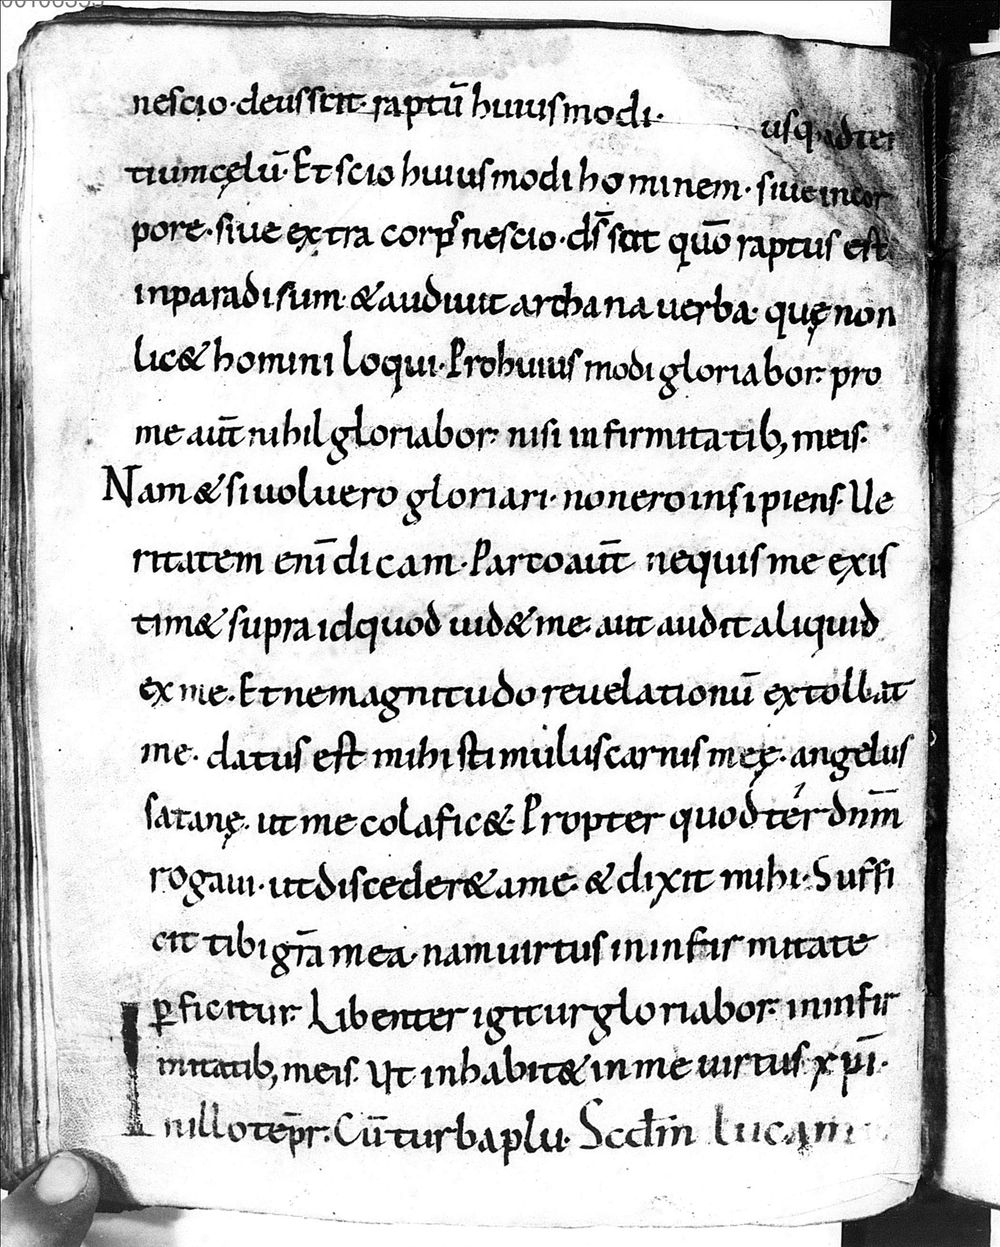 nescio · deus scit · raptū huiusmodi · usq; ad ter
tium cęlū · Et scio huiusmodi hominem · siue in cor
pore · siue extra corp' nescio · ds̄ scit quō raptus est
in paradisum · & audiuit archana uerba · quę non
lic& homini loqui · Pro huiusmodi gloriabor · pro
me aut̄ nihil gloriabor · nisi in firmitatib; meis ·
Nam & si uoluero gloriari · non ero insipiens · Ue
ritatem enī dicam · Parto aut̄ nequis me exis
tim& supra id quod uid& me · aut audit aliquid
ex me · Et ne magnitudo reuelationū extollat
me · datus est mihi stimulus carnis meę · angelus
satanę · ut me colafic& · Propter quod tér dnm̄
rogaui · ut disceder& a me · & dixit mihi · Suffi
cit tibi gr̄a mea · nam uirtus in infirmitate
ꝑficitur · Libenter igitur gloriabor · in infir
mitatib; meis · Ut inhabit& in me uirtus xp̄i ·
In illo tēpr · Cū turba plu · Scd̄m Lucam